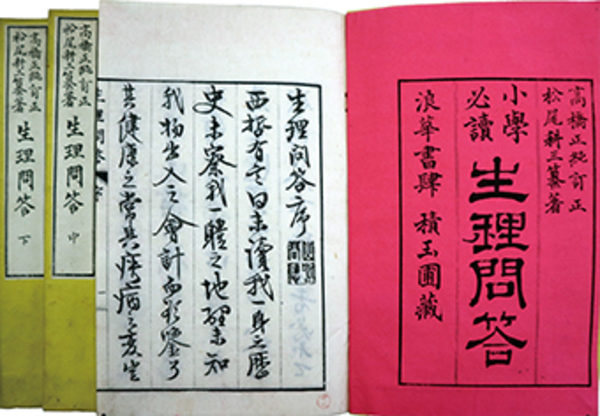 高橋正純訂正
松尾耕三纂著
小學
必讀
生理問答
浪華書肆 積玉圃藏
生理問答序
西哲有言曰未讀我一身之歴
史未察我一體之地理未知
我物出入之會計而能鑒了
其健康之常其疾病之変生
生理問答
高橋正純訂正
松尾耕三纂著
生理問答 中
高橋正純訂正
松尾耕三纂著
生理問答 下